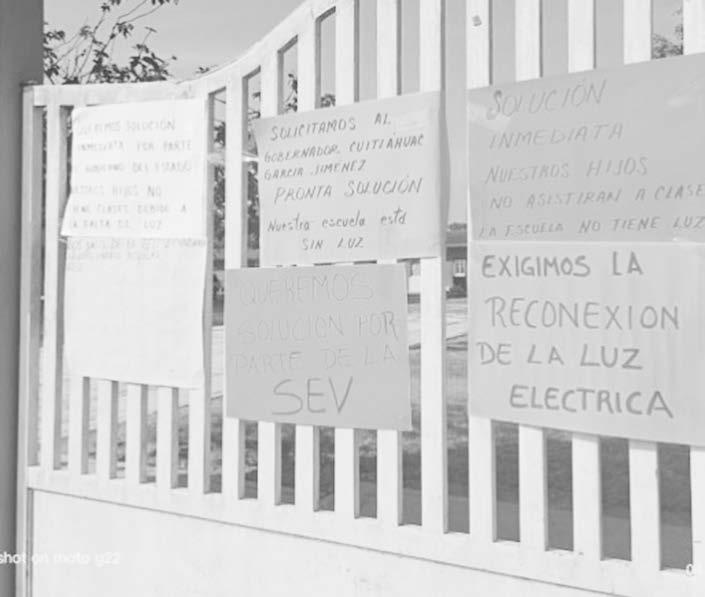 QUEREMOS SOLUCIÓN
INMEDIATA POR PARTE
GOBIERNO DEL ESTADO
HIJOS NO
CLASES DEBIDO A
LA FALTA DE LUZ
SOLICITAMOS AL
GOBERNADOR CUITLÁHUAC
GARCÍA JIMÉNEZ
PRONTA SOLUCIÓN
Nuestra escuela está
SIN LUZ
QUEREMOS
SOLUCION POR
PARTE DE LA
SEV
SOLUCIÓN
INMEDIATA
NUESTROS HIJOS
NO ASISTIRAN A CLASE
LA ESCUELA NO TIENE LUZ
EXIGIMOS LA
RECONEXION
DE LA LUZ
ELECTRICA
shot on moto g22